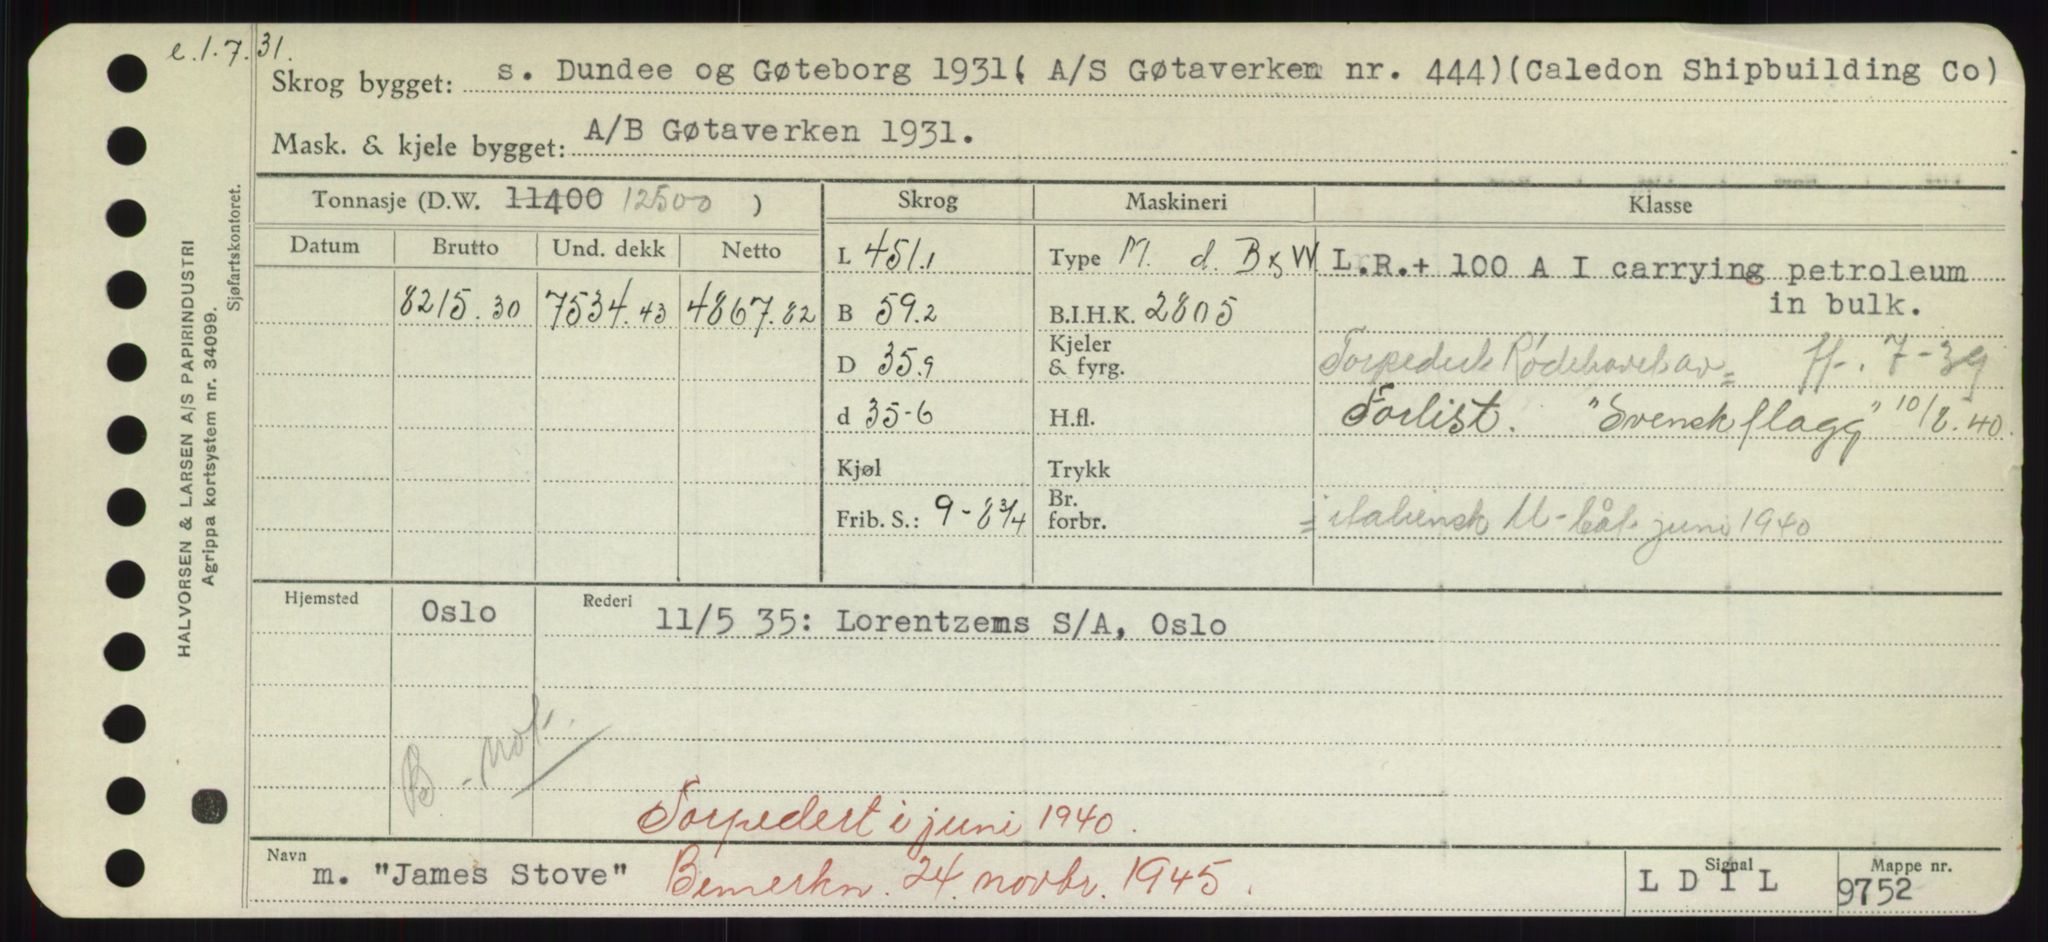 e. 1.7.31.
Skrog bygget: s. Dundee og Gøteborg 1931( A/S Gøtaverken nr. 444)(Caledon Shipbuilding Co)
Mask. & kjele bygget: A/B Gøtaverken 1931.
Tonnasje (D.W. 11400 12500 ) Skrog Maskineri Klasse
Datum Brutto Und. dekk Netto L 451.1 Type M. d. B & W L.R.+ 100 A I carrying petroleum
in bulk.
8215.30 7534.43 4867.82 B 59.2 B.I.H.K. 2805
D 35.9 Kjeler & fyrg. Torpedert Rødehavet av = ff. 7-39
d 35-6 H.fl. Forlist. "Svensk flagg" 10/8.40.
Kjøl Trykk
Frib. S.: 9-8 3/4 Br. forbr. = italiensk U-båt juni 1940
Hjemsted Oslo Rederi 11/5 35: Lorentzens S/A, Oslo
B - not.
Torpedert i juni 1940.
Navn m. "James Stove" Bemerkn. 24. novbr. 1945. Signal L D I L Mappe nr. 9752
HALVORSEN & LARSEN A/S PAPIRINDUSTRI
Agrippa kortsystem nr. 34099.
Sjøfartskontoret.